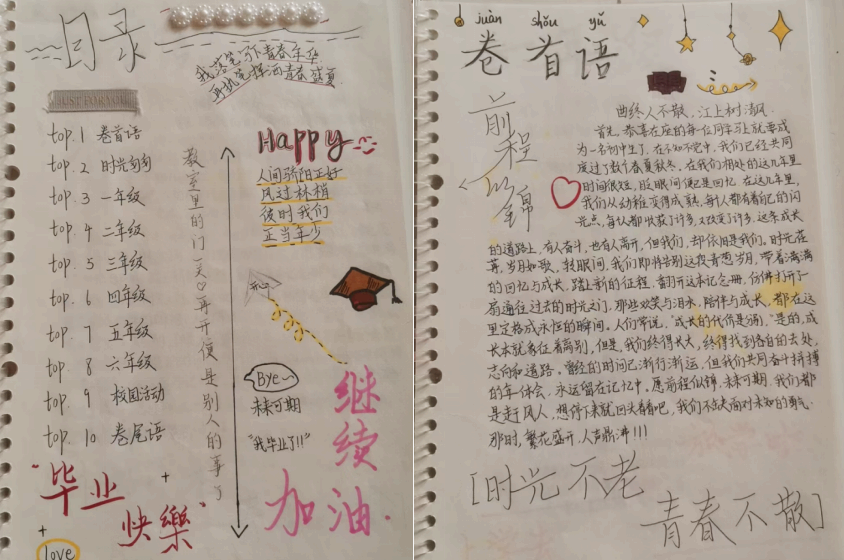 目录
我落笔于青春年华
再执笔挥洒青春盛夏
JUST FOR YOU
top. 1 卷首语
top. 2 时光匆匆
top. 3 一年级
top. 4 二年级
top. 5 三年级
top. 6 四年级
top. 7 五年级
top. 8 六年级
top. 9 校园活动
top. 10 卷尾语
教室里的门一关再开便是别人的事了
Happy
人间骄阳正好
风过林梢
彼时我们
正当年少
Bye~
未来可期
"我毕业了!!"
继续
加油.
"毕业
快樂"
love
juàn shǒu yǔ
卷首语
前程似锦
曲终人不散,江上树清风.
首先,恭喜在座的每一位同学马上就要成
为一名初中生了,在不知不觉中,我们已经共同
度过了数个春夏秋冬。在我们相处的这几年里
时间很短,眨眼间便已是回忆.在这几年里,
我们从幼稚变得成熟,每个人都有着自己的闪
光点,每个人都收获了许多,又改变了许多.这条成长
的道路上,有人奋斗,也有人离开,但我们,却依旧是我们。时光荏
苒,岁月如歌,转眼间,我们即将告别这段青葱岁月,带着满满
的回忆与成长,踏上新的征程.翻开这本纪念册,仿佛打开了一
扇通往过去的时光之门,那些欢笑与泪水,陪伴与成长,都在这
里定格成永恒的瞬间。人们常说,"成长的代价是痛,"是的,成
长本就象征着离别,但是,我们终得长大,终得找到各自的去处,
志向和道路。曾经的时间已渐行渐远,但我们共同奋斗拼搏
的年华会,永远留在记忆中,愿前程似锦,未来可期,我们都
是赶风人,想停下来就回头看看吧,我们不缺面对未知的勇气.
那时,繁花盛开,人声鼎沸!!!
[时光不老
青春不散]